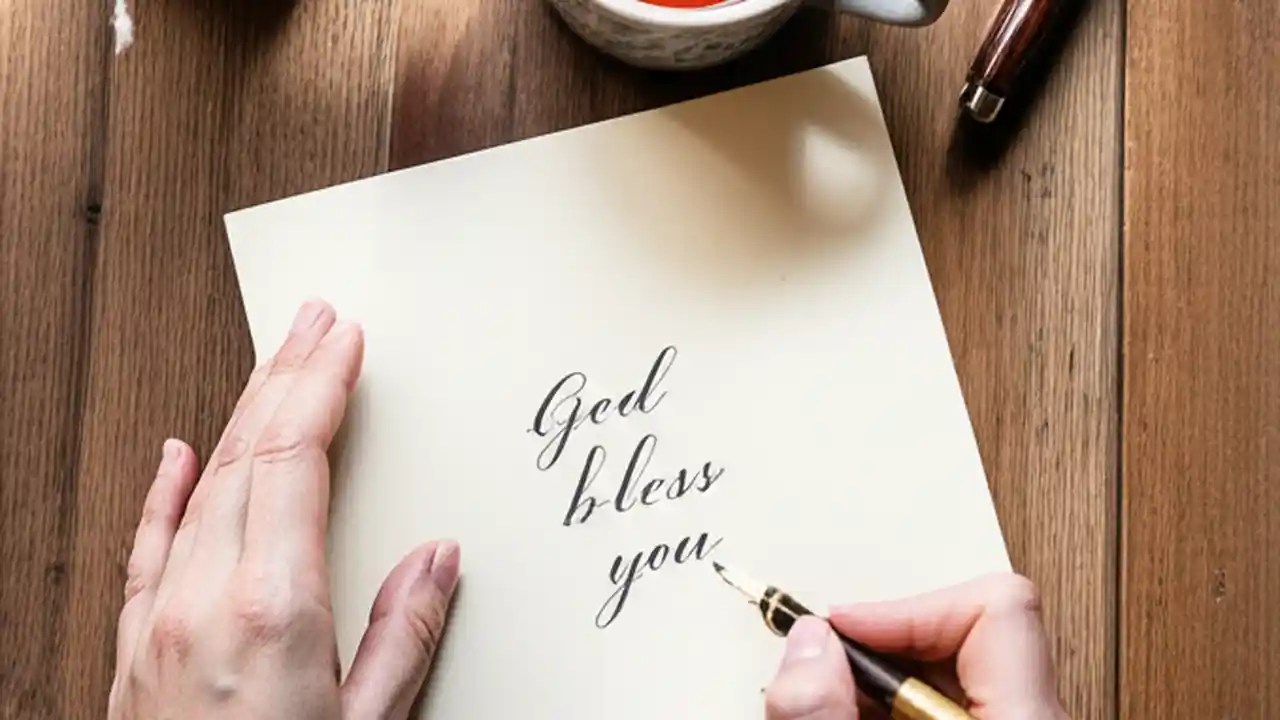 God
bless
you